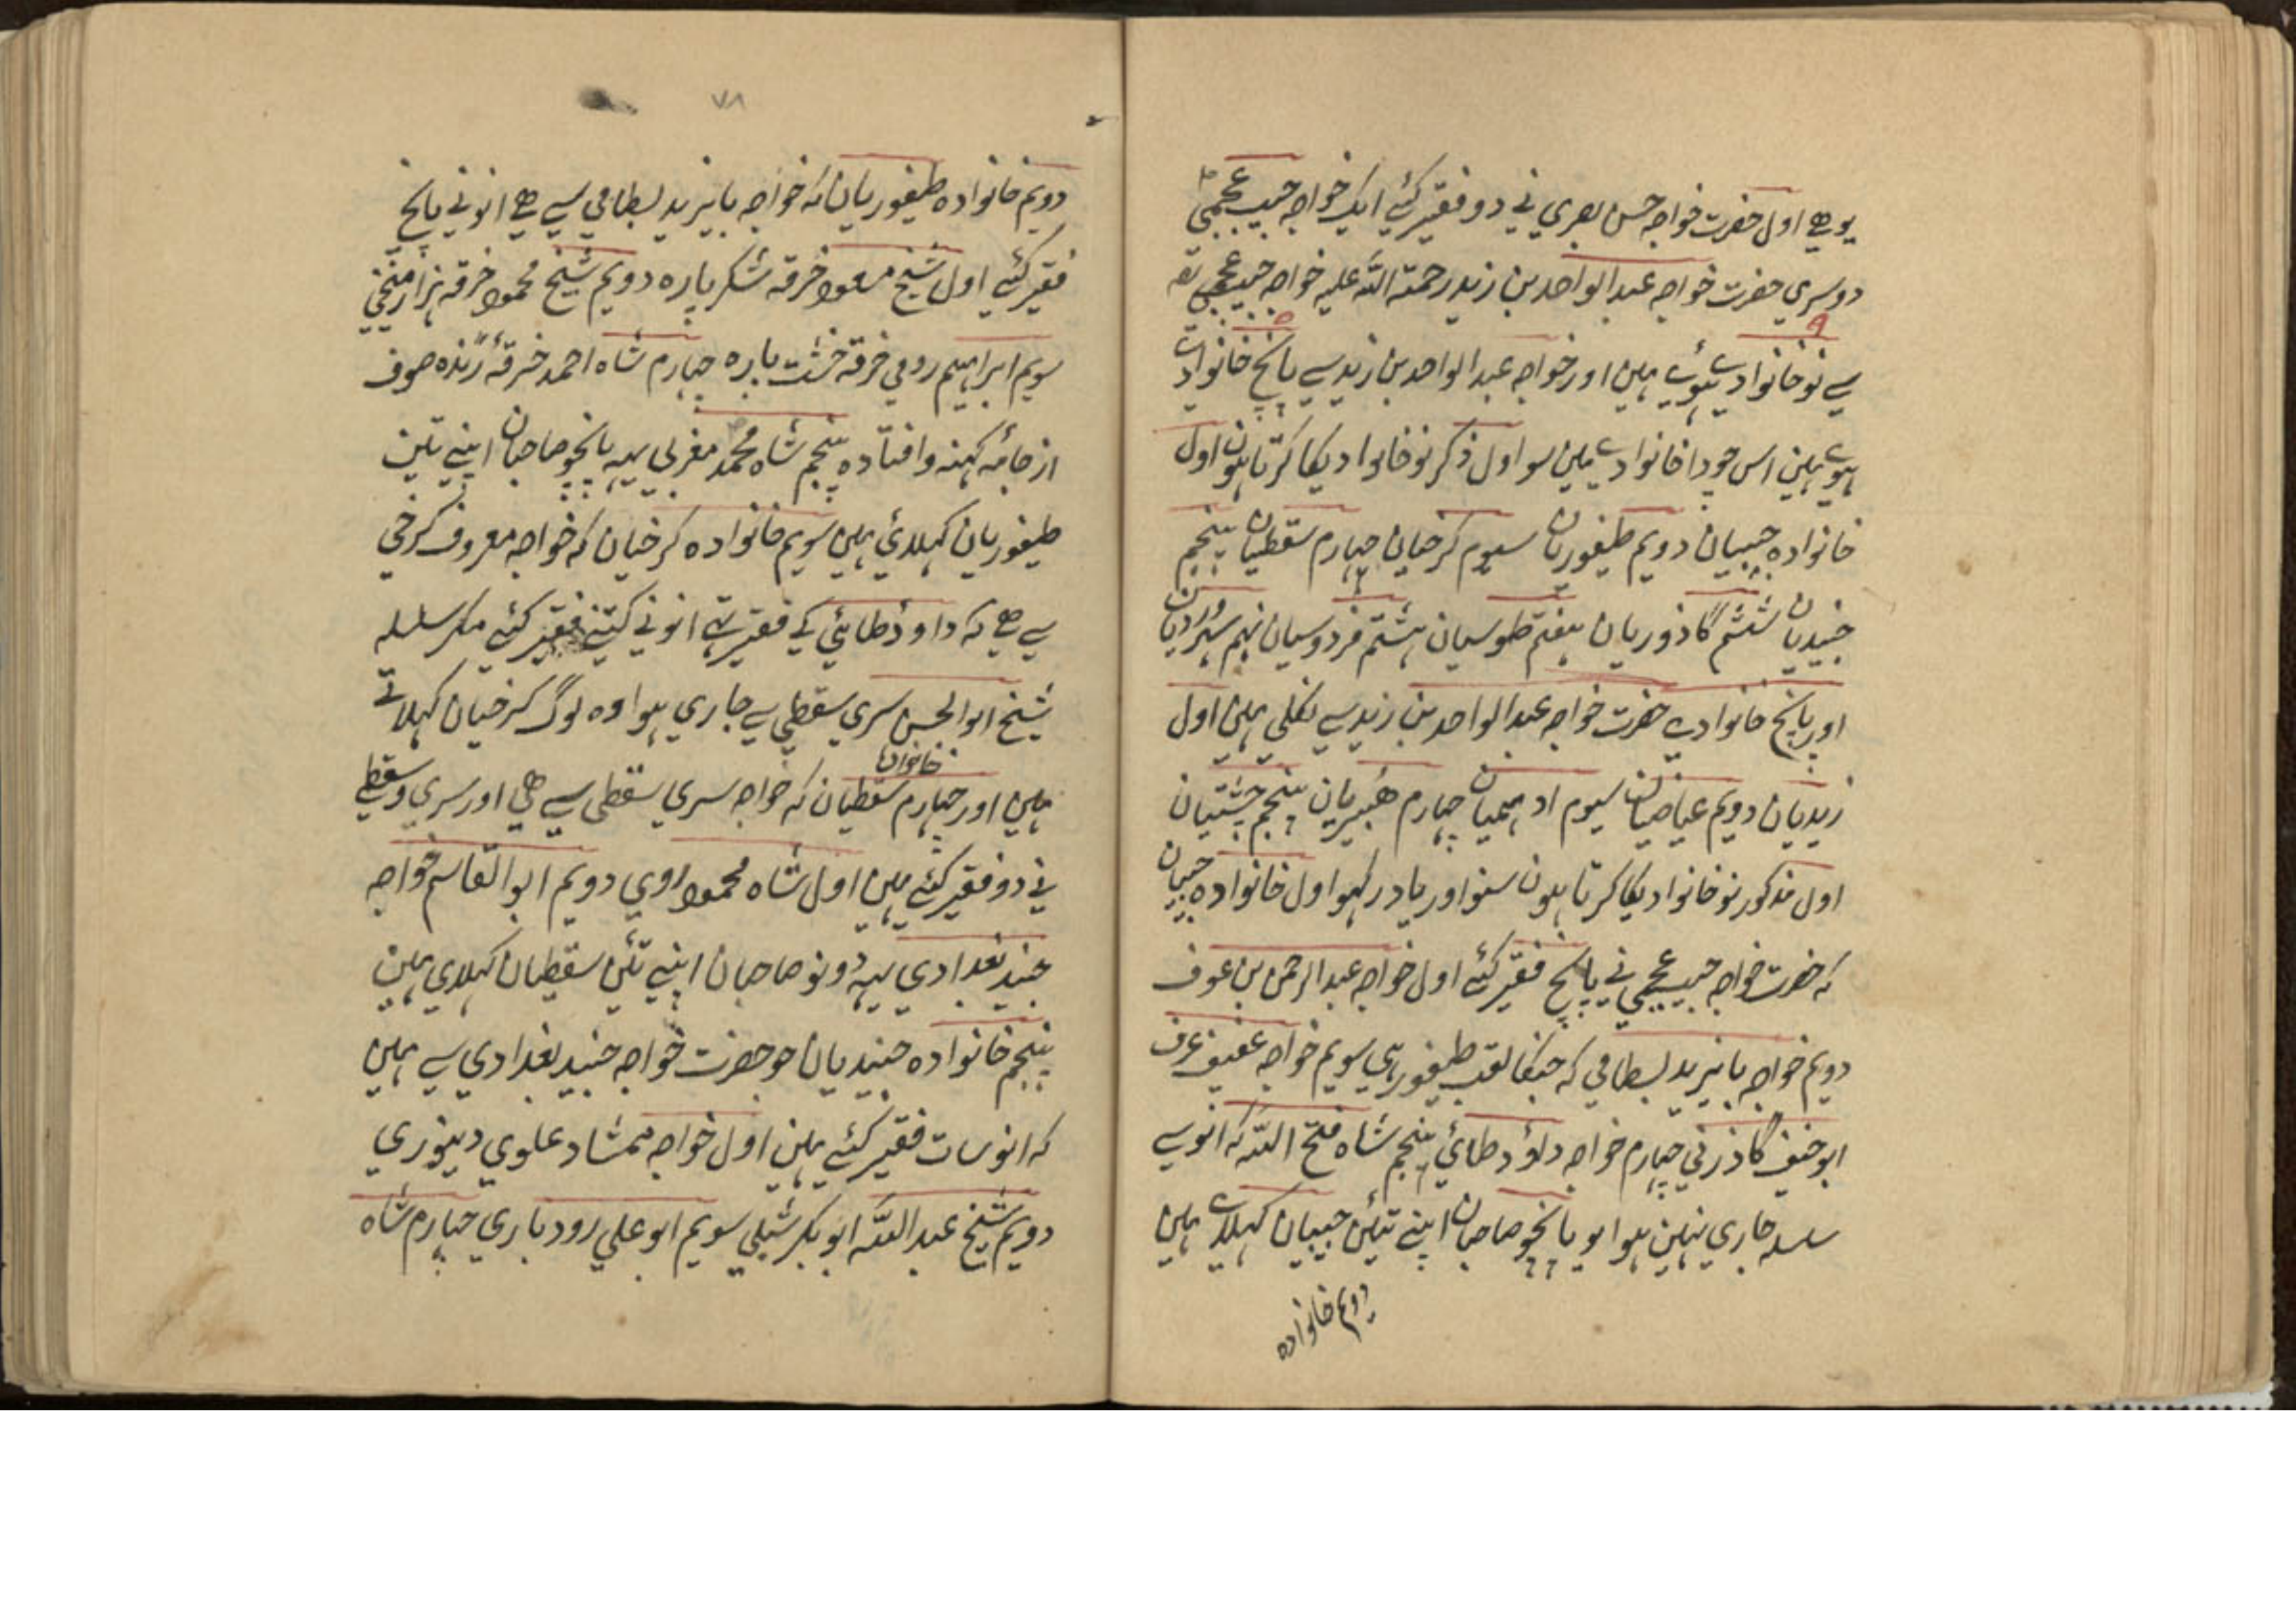 یو هے اول حضرت خواجہ حسن بصري نے دو فقیر کئے ایک خواجہ حبیب عجمي
دوسري حضرت خواجہ عبد الواحد بن زید رحمة اللّٰه علیہ خواجہ حبیب عجمي
سے نو خانوادے ہوے ہین اور خواجہ عبد الواحد بن زید سے پانچ خانوادے
ہوے ہین اس چودا خانوادے مین سو اول ذکر نو خانوادیکا کرتا ہون اول
خانوادہ حبیبیان دویم طیفوریان سیوم کرخیان چہارم سقطیان پنجم
جنیدیان ششم گاذوریان ہفتم طوسیان ہشتم فردوسیان نہم سہروردیان
اور پانچ خانوادے حضرت خواجہ عبد الواحد بن زید سے نکلی ہین اول
زیدیان دویم عیاضیان سیوم ادہمیان چہارم ہبیریان پنجم چشتیان
اول مذکور نو خانوادیکا کرتا ہون سنو اور یاد رکہو اول خانوادہ حبیبیان
کہ حضرت خواجہ حبیب عجمي نے پانچ فقیر کئے اول خواجہ عبد الرحمن بن عوف
دویم خواجہ بایزید بسطامي کہ جنکا لقب طیفور ہی سویم خواجہ عفیف عرف
ابو خفیف گاذرني چہارم خواجہ داؤد طائي پنجم شاہ فتح اللّٰه کہ انو سے
سلسلہ جاري نہین ہوا یو پانچو صاحبان اپنے تئین حبیبیان کہلاے ہین
دویم خانوادہ
۷۸
دویم خانوادہ طیفوریان کہ خواجہ بایزید بسطامي سے هے انو نے پانچ
فقیر کئے اول شیخ مسعود خرقہ شکر پارہ دویم شیخ محمود خرقہ ہزار میخي
سویم ابراہیم رومي خرقہ خشت پارہ چہارم شاہ احمد خرقہ ژندہ صوف
از جامہ کہنہ و افتادہ پنجم شاہ محمد مغربي یہہ پانچو صاحبان اپنے تئین
طیفوریان کہلائي ہین سویم خانوادہ کرخیان کہ خواجہ معروف کرخي
سے هے کہ داود طائي کے فقیر تہے انو نے کتنے فقیر کئے مگر سلسلہ
شیخ ابو الحسن سري سقطي سے جاري ہوا وہ لوگ کرخیان کہلاتے
ہین اور چہارم خانوادہ سقطیان کہ خواجہ سري سقطي سے هي اور سري سقطي
نے دو فقیر کئے ہین اول شاہ محمود روي دویم ابو القاسم خواجہ
جنید بغدادي یہہ دونو صاحبان اپنے تئین سقطیان کہلاي ہین
پنجم خانوادہ جنیدیان جو حضرت خواجہ جنید بغدادي سے ہین
کہ انو سات فقیر کئے ہین اول خواجہ ممشاد علوي دینوري
دویم شیخ عبد اللّٰه ابو بکر شبلي سویم ابو علي رودباري چہارم شاہ